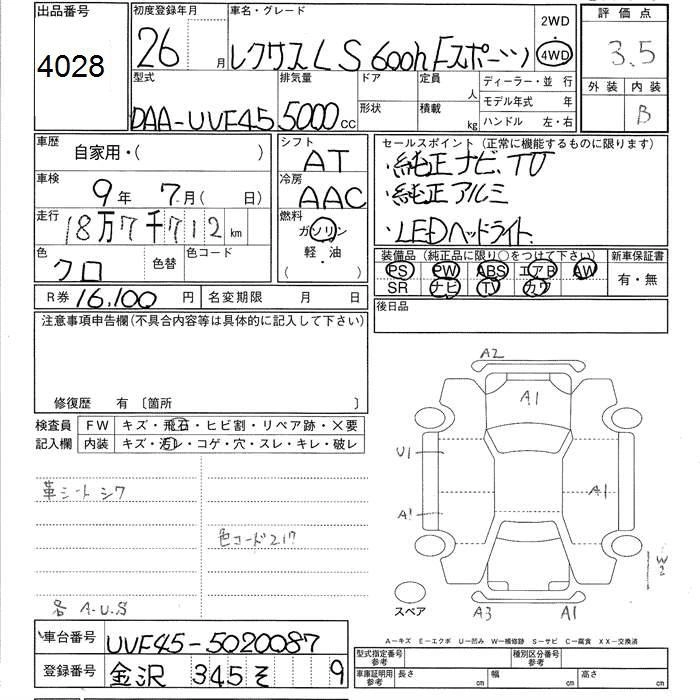 出品番号
4028
初度登録年月
26 月
車名・グレード
レクサスLS600hFスポーツ
2WD
・
4WD
評価点
3.5
外装 内装
B
型式
DAA-UVF45
排気量
5000 CC
ドア
形状
定員
人
積載
kg
ディーラー・並 行
モデル年式 年
ハンドル 左・右
車歴
自家用・( )
車検
9年 7月( 日)
走行
18万7千712 km
色
クロ
色替
色コード
R券 16,100 円
名変期限 月 日
シフト
AT
冷房
AAC
燃料
ガソリン
軽・油
( )
セールスポイント (正常に機能するものに限ります)
・純正ナビ.TV
・純正アルミ
・LEDヘッドライト.
装備品 (純正品に限り○をつけて下さい)
PS PW ABS エアB AW
SR ナビ TV カワ
新車保証書
有・無
後日品
注意事項申告欄(不具合内容等は具体的に記入して下さい)
修復歴 有 〔箇所 〕
検査員
記入欄
FW キズ・飛石・ヒビ割・リペア跡・×要
内装 キズ・汚レ・コゲ・穴・スレ・キレ・破レ
革シートシワ
色コード217
各 A-U.S
A2
A1
U1
A1
A1
W2
スペア
A3
A1
A－キズ E－エクボ U－凹み W－補修跡 S－サビ C－腐食 XX－交換済
車台番号 UVF45-5020087
登録番号 金沢 345 そ 9
型式指定番号
参考
種別区分番号
参考
車庫証明用
参考
長さ cm
幅 cm
高さ cm